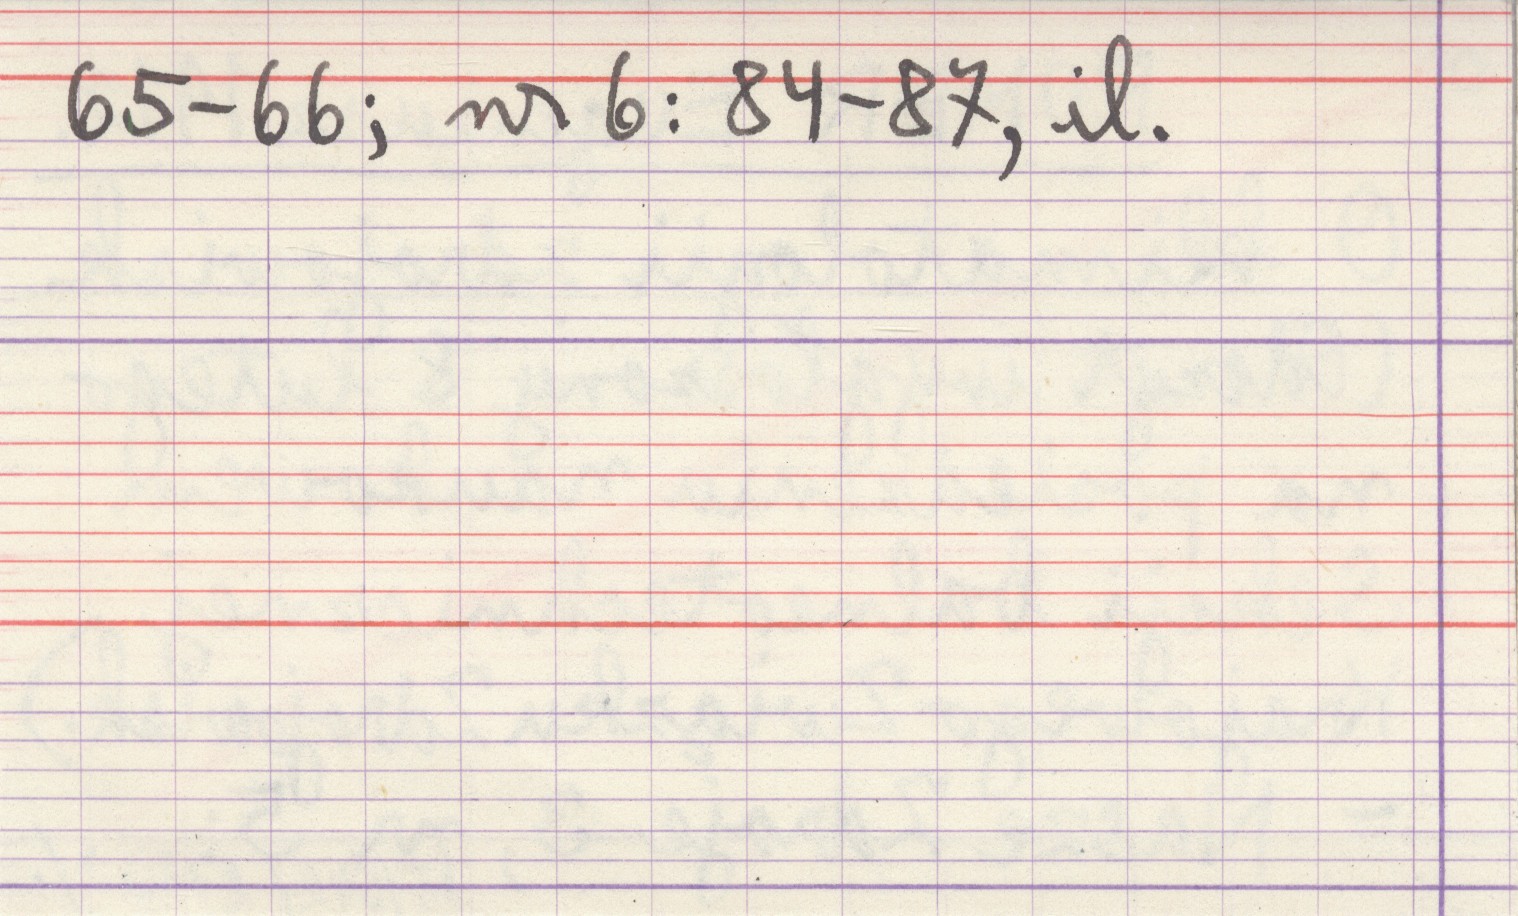 65-66; nr 6: 84-87, il.